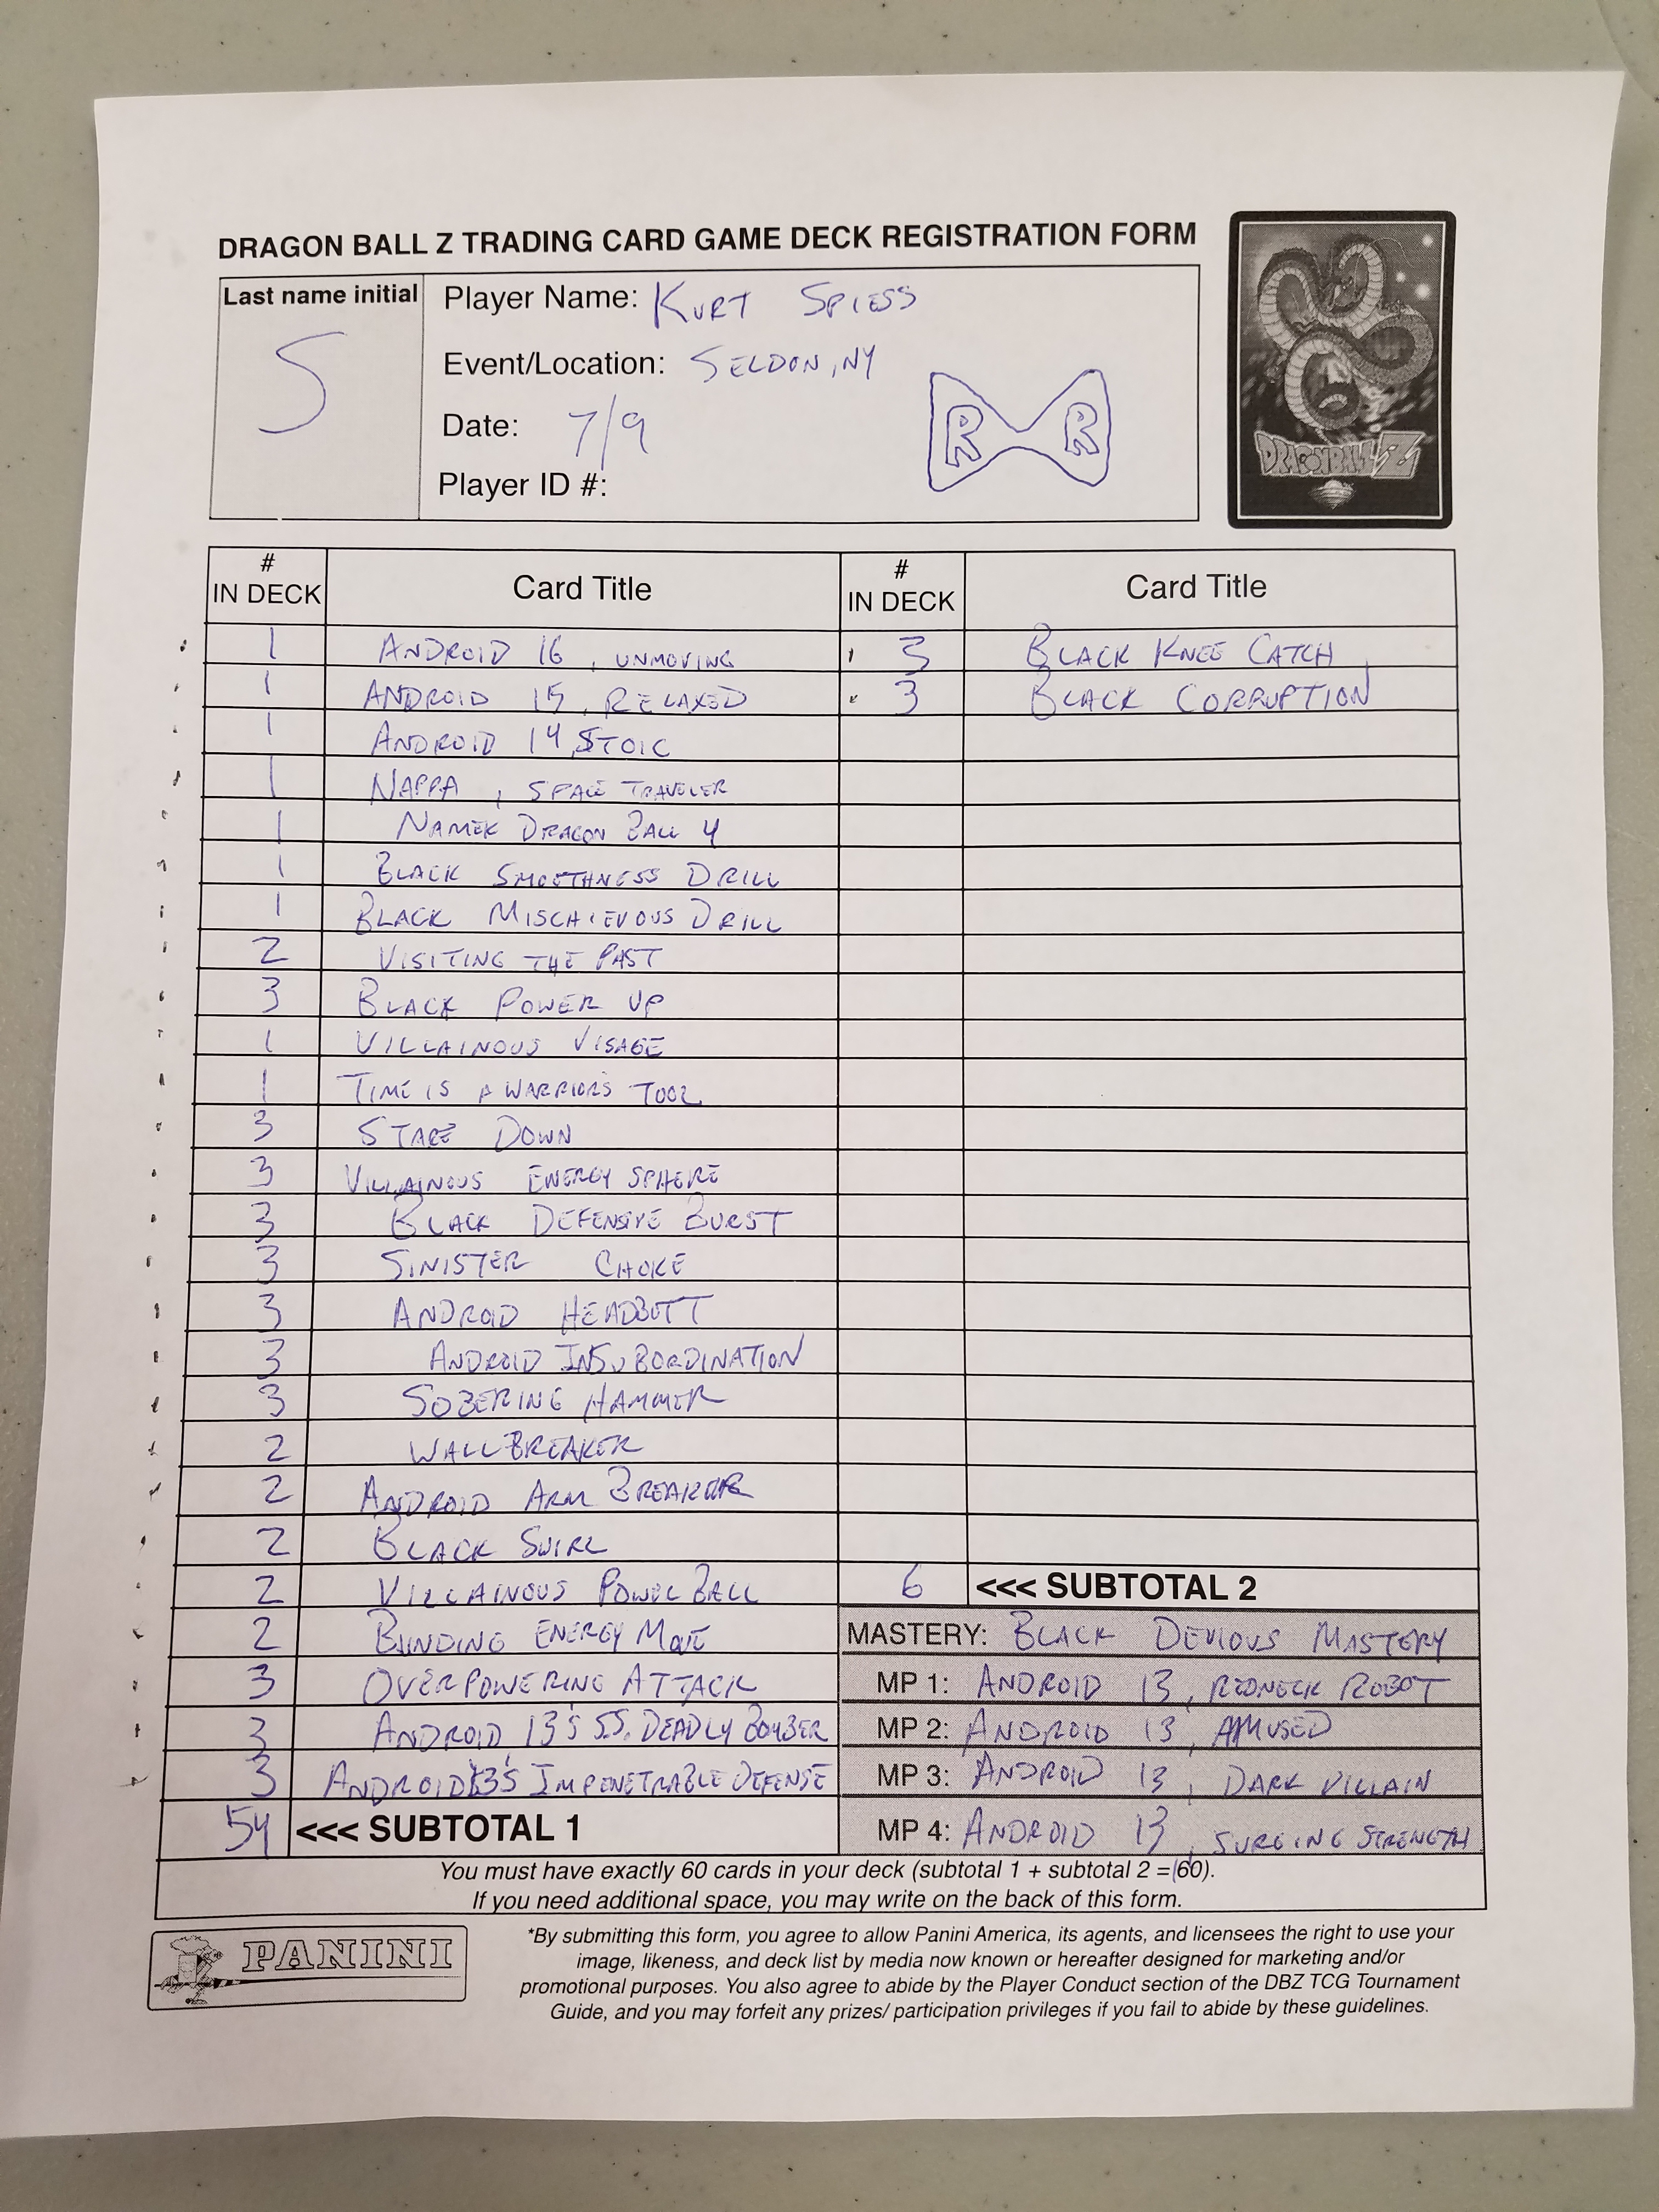 DRAGON BALL Z TRADING CARD GAME DECK REGISTRATION FORM
Last name initial
S
Player Name: KURT SPIESS
Event/Location: SELDON, NY
Date: 7/9
Player ID #:
R R
DRAGONBALL Z
# IN DECK Card Title # IN DECK Card Title
1 ANDROID 16, UNMOVING 3 BLACK KNEE CATCH
1 ANDROID 15, RELAXED 3 BLACK CORRUPTION
1 ANDROID 14, STOIC
1 NAPPA, SPACE TRAVELER
1 NAMEK DRAGON BALL 4
1 BLACK SMOOTHNESS DRILL
1 BLACK MISCHIEVOUS DRILL
2 VISITING THE PAST
3 BLACK POWER UP
1 VILLAINOUS VISAGE
1 TIME IS A WARRIOR'S TOOL
3 STARE DOWN
3 VILLAINOUS ENERGY SPHERE
3 BLACK DEFENSIVE BURST
3 SINISTER CHOKE
3 ANDROID HEADBUTT
3 ANDROID INSUBORDINATION
3 SOBERING HAMMER
2 WALL BREAKER
2 ANDROID ARM BREAKER
2 BLACK SWIRL
2 VILLAINOUS POWER BALL 6 <<< SUBTOTAL 2
2 BLINDING ENERGY MOVE MASTERY: BLACK DEVIOUS MASTERY
3 OVERPOWERING ATTACK MP 1: ANDROID 13, REDNECK ROBOT
3 ANDROID 13'S S.S. DEADLY BOMBER MP 2: ANDROID 13, AMUSED
3 ANDROID 13'S IMPENETRABLE DEFENSE MP 3: ANDROID 13, DARK VILLAIN
54 <<< SUBTOTAL 1 MP 4: ANDROID 13, SURGING STRENGTH
You must have exactly 60 cards in your deck (subtotal 1 + subtotal 2 = 60).
If you need additional space, you may write on the back of this form.
PANINI
*By submitting this form, you agree to allow Panini America, its agents, and licensees the right to use your
image, likeness, and deck list by media now known or hereafter designed for marketing and/or
promotional purposes. You also agree to abide by the Player Conduct section of the DBZ TCG Tournament
Guide, and you may forfeit any prizes/ participation privileges if you fail to abide by these guidelines.